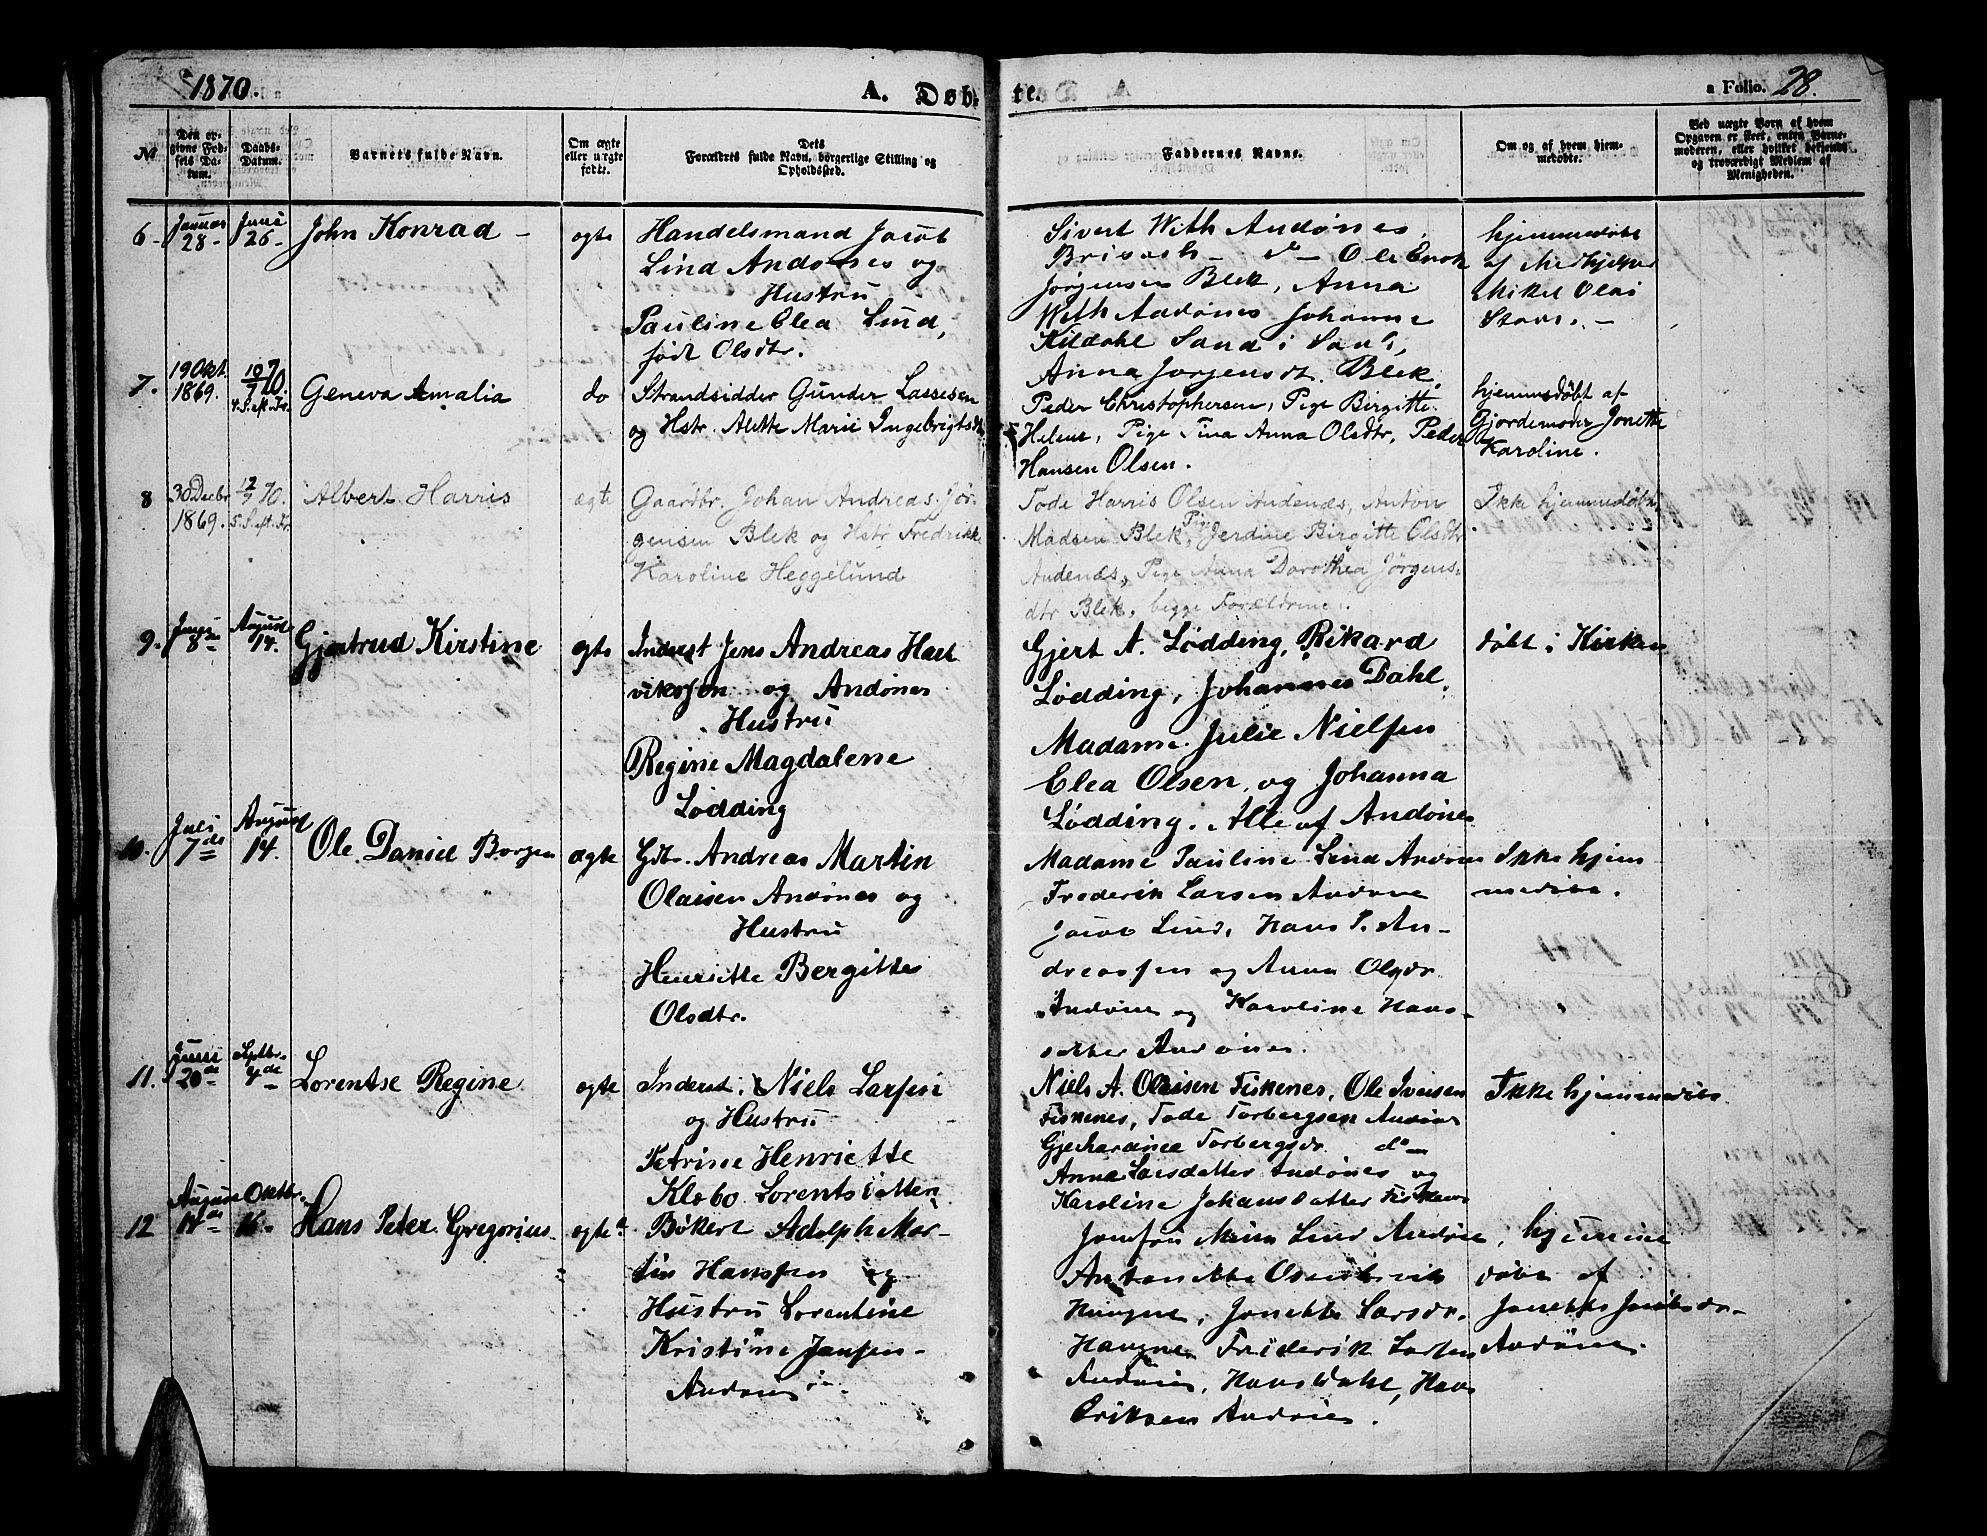 1870.
A. Døbte.
a Folio. 28.
№
Den opgivne Fødsels Datum.
Daabs-Datum.
Barnets fulde Navn.
Om ægte eller uægte fødte.
Dets Forældres fulde Navn, borgerlige Stilling og Opholdssted.
Faddernes Navne.
Om og af hvem hjemmedøbte.
Ved uægte Børn af hvem Opgaven er skeet, enten Barnemoderen, eller hvilket bekjendt og troværdigt Medlem af Menigheden.
6 - Januar 28 - Juni 26 - John Konrad - ægte
Handelsmand Jacob
Lind Andønes og
Hustru
Pauline Elea Lind,
født Olsdtr.
Sivert With Andønes,
do - Ole Enok
Jørgensen Blek, Anna
With Andønes Johanne
Kildahl Sand i Sand,
Anna Jørgensdt. Blek,
hjemmedøbt
af Medhjelper
Mikal Olai
7. 19 Okt. 1869. 10/7 70. 4. S. e. Tr. Geneva Amalia do
Strandsidder Gunder Lassesen
og Hstr. Alette Marie Ingebrigtsdt
Peder Christophersen, Pige Birgitte
Helene, Pige Tina Anna Olsdtr, Peder
Hansen Olsen.
hjemmedøbt af
Gjordemoder Jonette
Karoline.
8 30 Decbr 1869. 12/7 70. 5. S. e. Tr. Albert Harris ægte
Gaardbr. Johan Andreas Jør-
gensen Blek og Hstr Fredrikke
Karoline Heggelund
Tode Harris Olsen Andenæs, Anton
Madsen Blek, Pige Jerdine Birgitte Olsdtr
Andenæs, Pige Anna Dorothea Jørgens-
dtr Blek, begge Forældrene.
Ikke hjemmedøbt
9. 8de August 14. Gjertrud Kirstine ægte
Inderst Jens Andreas Hart
viksen og Andønes
Hustru
Regine Magdalene
Lødding
Gjert A. Lødding, Rikard
Lødding, Johannes Dahl,
Madame Julie Nielsen
Elea Olsen, og Johanna
Lødding. Alle af Andønes
døbt i Kirken
10. Juli 7de August 14. Ole Daniel Borgen ægte
Gdbr. Andreas Martin
Olaisen Andønes og
Hustru
Henriette Bergitte
Olsdtr.
Madame Pauline Lind Andønes
Frederik Larsen Andøne
Jacob Lind, Hans P. An-
dreassen og Anna Olsdr
Andønes og Karoline Hans-
datter Andønes.
Ikke hjem
medøbt.
11. Juni 20de Septbr. 4de Lorentse Regine ægte
Inderst. Niels Larsen
og Hustru
Petrine Henriette
Klæbo Lorentsdatter
Niels A. Olaisen Fiskenes, Ole Iversen
Fiskenes, Tode Torbergsen Andønes
Torbergsdr do -
Anna Larsdatter Andønes og
Karoline Johansdatter Fiskenes
Ikke hjemmedøbt
12 August 14de Oktbr. 16. Hans Peter Gregorius ægte
Bøkert Adolph Mar-
tin Hanssen og
Hustru Lorentine
Kristine Jansen
Andønes
Lind Andønes,
Haugnes, Jonette Larsdr.
Haugnes Friderik Larsen
Andønes, Hans Dahl, Hans
Eriksen Andønes.
hjemme
døbt af
Jonette Jakobsdr
Andønes.